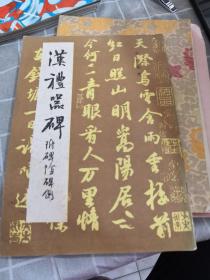 漢禮器碑
附碑陰碑側
天際烏雲含雨重樓前
紅日照山明嵩陽居士
今何在青眼看人萬里情